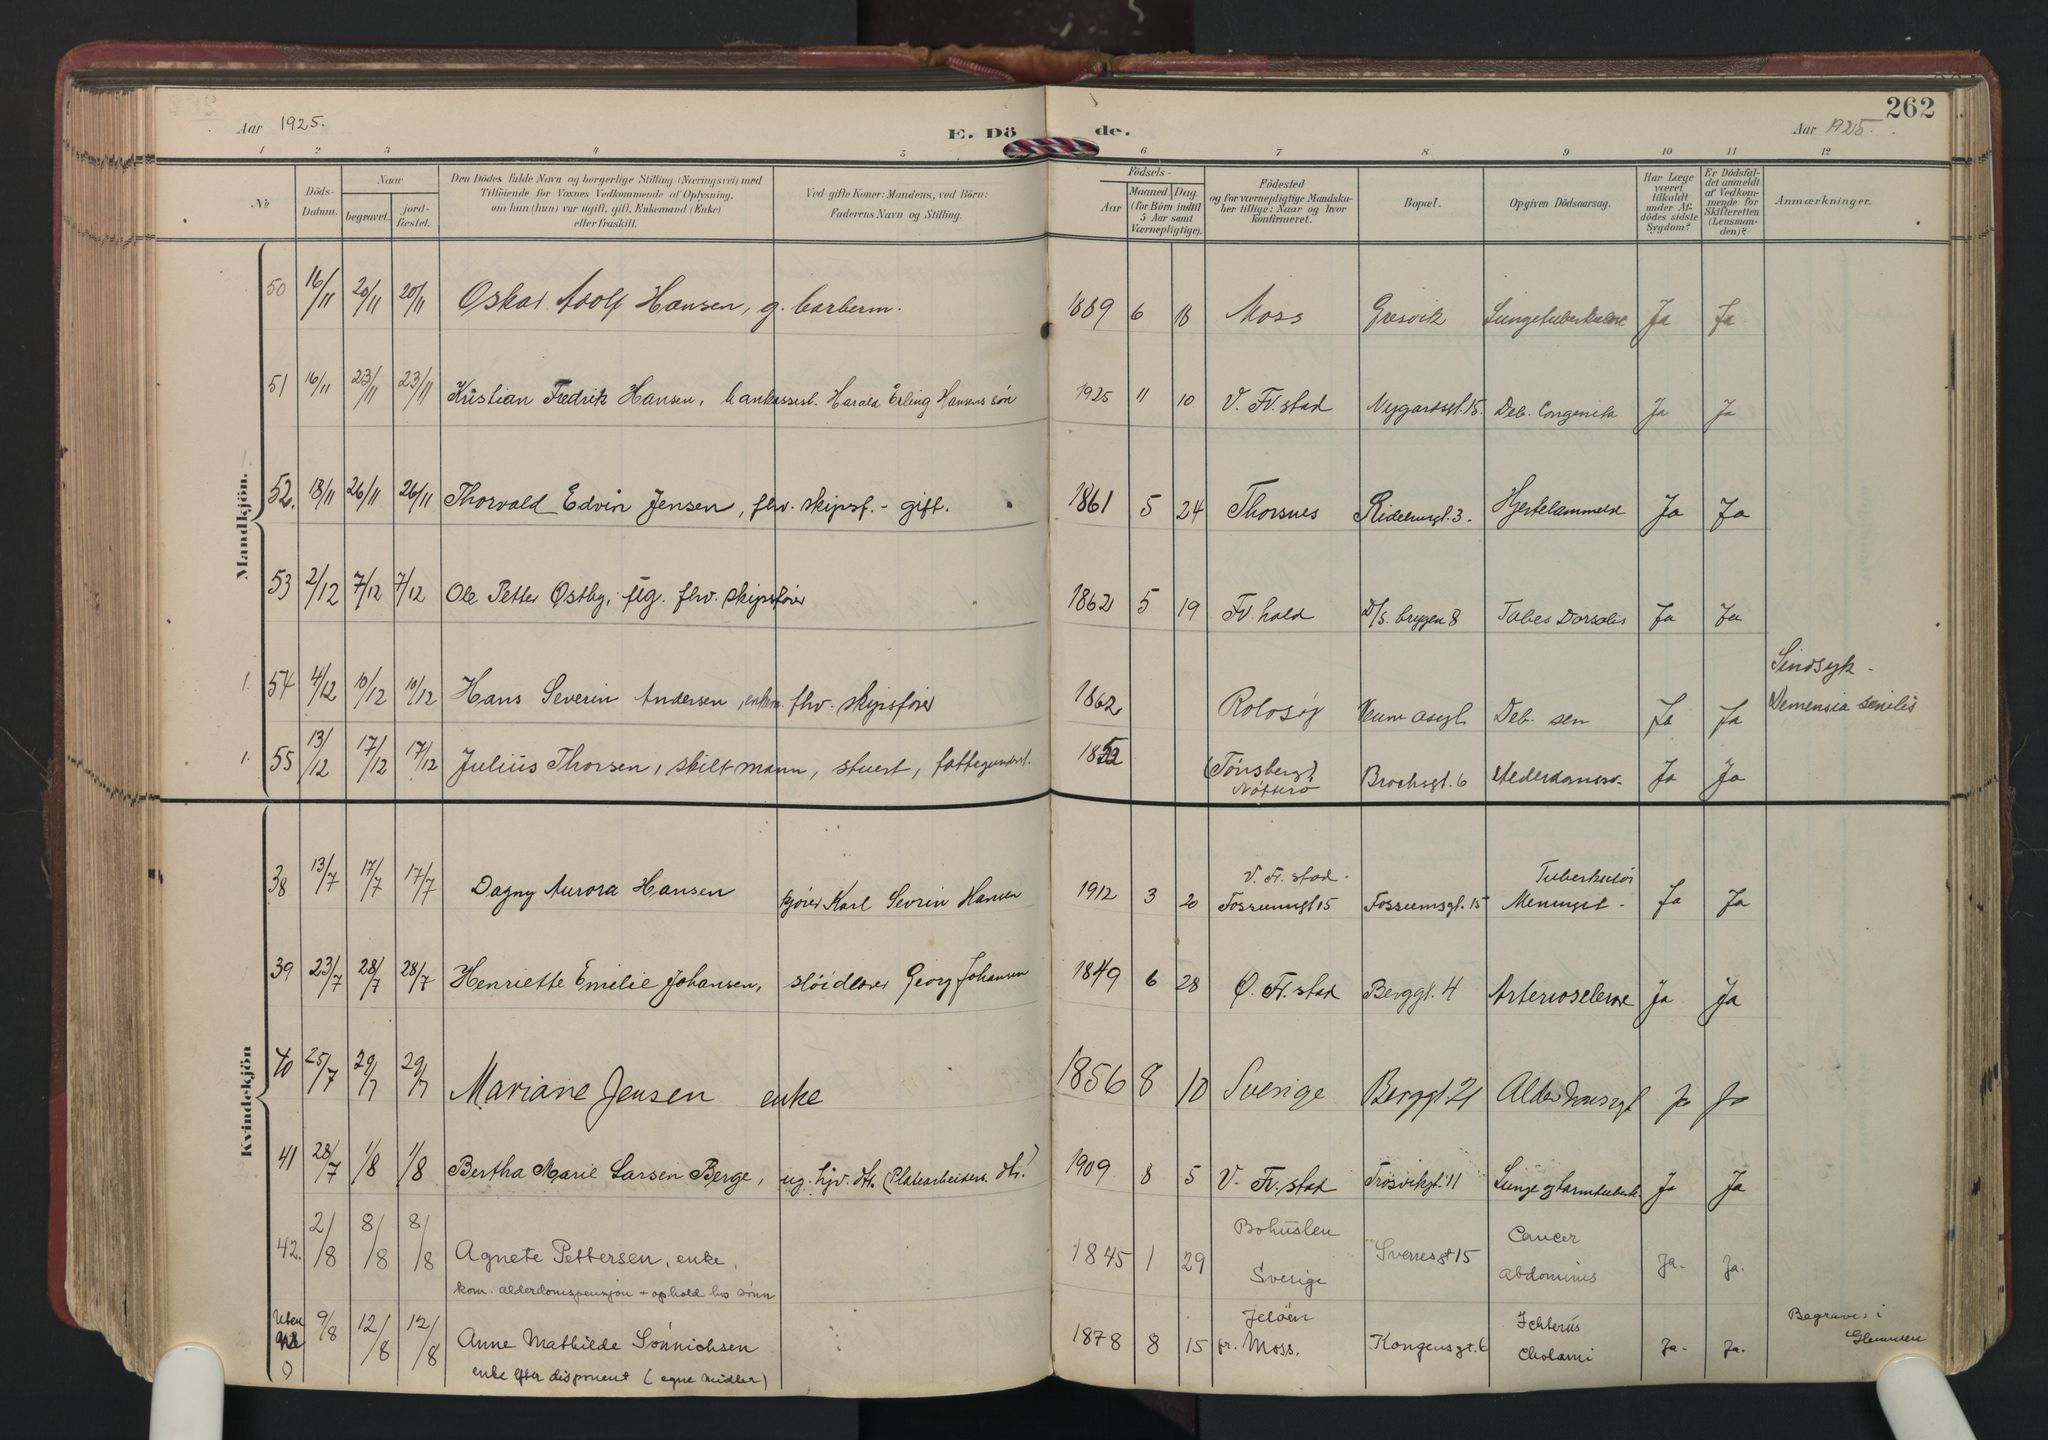 Aar 1925.
E. Dö de.
Aar 1925.
262
1 2 3 4 5 6 7 8 9 10 11 12
No
Döds-Datum.
Naar
begravet.
jord-fæstet.
Den Dödes fulde Navn og borgerlige Stilling (Næringsvei) med
Tilföiende for Voxnes Vedkommende af Oplysning,
om han (hun) var ugift, gift, Enkemand (Enke)
eller fraskilt.
Ved gifte Koner: Mandens, ved Börn:
Faderens Navn og Stilling.
Födsels-
Aar
Maaned. Dag.
(for Börn indtil
5 Aar samt
Værnepligtige).
Födested
og for værnepligtige Mandskaber tillige: Naar og hvor
konfirmeret.
Bopæl.
Opgiven Dödsaarsag.
Har Læge
været
tilkaldt
under Afdödes sidste
Sygdom?
Er Dödsfaldet anmeldt
af Vedkommende for
Skifteretten
(Lensmanden)?
Anmærkninger.
Mandkjön.
50 16/11 20/11 20/11 Oskar Adolf Hansen, g. barberm. 1889 6 18 Moss Gresvik Lungetuberkulose Ja Ja
51 16/11 23/11 23/11 Kristian Fredrik Hansen, bankassist. Harald Erling Hansens søn 1925 11 10 V. Fr.stad Nygardsgt. 15. Deb. Congenita Ja Ja
52. 18/11 26/11 26/11 Thorvald Edvin Jensen, fhv. skipsf. - gift. 1861 5 24 Thorsnes 3. Hjertelammelse Ja Ja
53 2/12 7/12 7/12 Ole Petter Østby, fhv. skipsfører 1862 5 19 Fr.hald D/s. bryggen 8 Tabes Dorsalis Ja Ja
1. 54 4/12 10/12 10/12 Hans Severin Andersen, enkem. fhv. skipsfører 1862 Rolosøy Veum asyl Deb. sen Ja Ja Sindsyk -
Demensia senilis
1. 55 13/12 17/12 17/12 Julius Thorsen, skilt mann, stuert, fattigunderst. (Tønsberg)
Nøtterø Brochsgt. 6 Ja Ja
Kvindekjön
38 13/7 17/7 17/7 Dagny Aurora Hansen kjører Karl Sevrin Hansen 1912 3 20 V. Fr. stad -
Fossumsgt 15 Fossumsgt. 15 Tuberkuløs
Meningit - Ja Ja
39 23/7 28/7 28/7 Henriette Emilie Johansen, sløidlærer Georg Johansen 1849 6 28 Ø. Fr. stad Berggt. 4 Arteriosclerose Ja Ja
40 25/7 29/7 29/7 Mariane Jensen enke 1856 8 10 Sverige Berggt. 21 Ja Ja
41 28/7 1/8 1/8 Bertha Marie Larsen Berge, ug. hjv. dtr. (Platearbeiders dtr.) 1909 8 5 V. Fr. stad Trosvikgt. 11 Lunge og tarmtuberk. Ja Ja
42. 2/8 8/8 8/8 Agnete Pettersen, enke,
kom. alderdomspensjon + ophold hos sønn 1845 1 29 Bohuslen
Sverige Sverresgt 15 Cancer
Abdominis Ja. Ja.
Uten
No
0 9/8 12/8 12/8 Anne Mathilde Sønnichsen
enke efter disponent (egne midler) 1878 8 15 Jeløen
pr. Moss. Kongensgt. 6 Ichterus
Cholami Ja. Ja. Begraves i
Glemmen